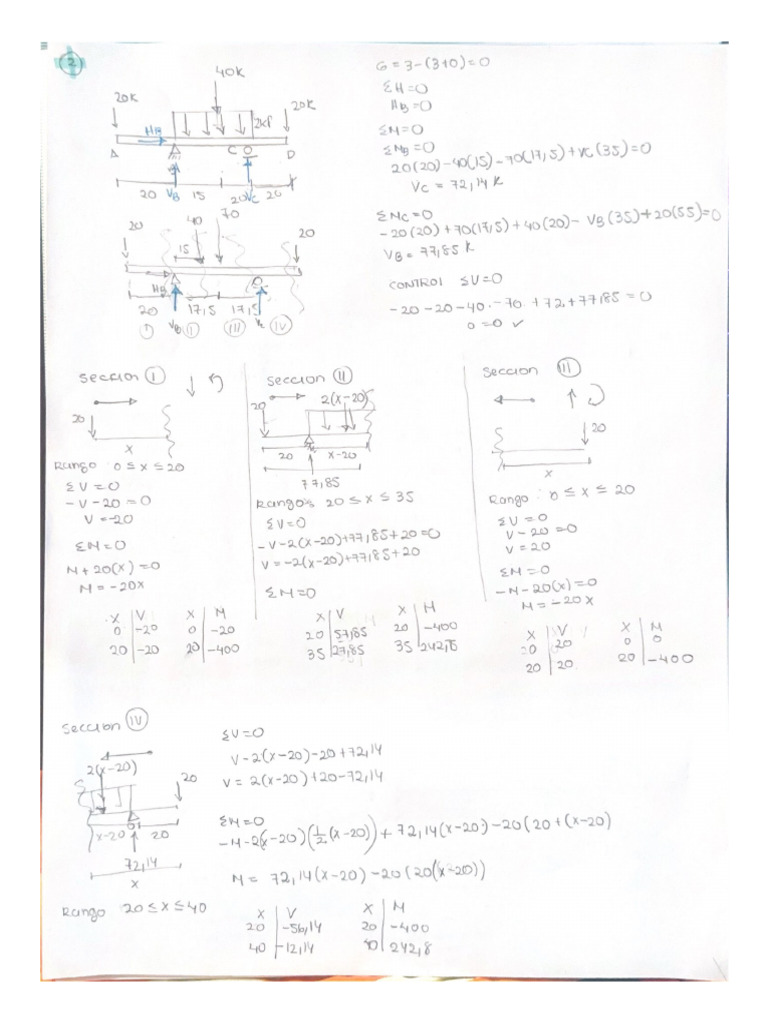 2
40K
20K
20K
HB
2kf
A
C
D
20
VB
15
20
VC
20
70
20
40
20
15
HB
20
17,5
17,5
VB
II
III
IV
G = 3-(3+0)=0
ΣH=0
HB=0
ΣM=0
ΣMB=0
20(20)-40(15)-70(17,5)+VC(35)=0
VC = 72,14 K
ΣMC=0
-20(20)+70(17,5)+40(20)-VB(35)+20(55)=0
VB=77,85 K
CONTROL ΣV=0
-20-20-40-70+72+77,85=0
0=0 ✓
Seccion I
20
x
Rango 0≤x≤20
ΣV=0
-V-20=0
V=-20
ΣM=0
M+20(x)=0
M=-20x
X V X M
0 -20 0 -20
20 -20 20 -400
Seccion II
2(x-20)
20
20 x-20
77,85
Rango: 20≤x≤35
ΣV=0
-V-2(x-20)+77,85+20=0
V=-2(x-20)+77,85+20
ΣM=0
X V X M
20 57,85 20 -400
35 27,85 35 242,5
Seccion III
20
x
Rango: 0≤x≤20
ΣV=0
V-20=0
V=20
ΣM=0
-M-20(x)=0
M=-20x
X V X M
0 20 0 0
20 20 20 -400
Seccion IV
2(x-20)
20
x-20 20
72,14
x
Rango 20≤x≤40
ΣV=0
V-2(x-20)-20+72,14
V=2(x-20)+20-72,14
ΣM=0
-M-2(x-20)(1/2(x-20))+72,14(x-20)-20(20+(x-20)
M= 72,14(x-20)-20(20(x-20))
X V X M
20 -56,14 20 -400
40 -12,14 242,8